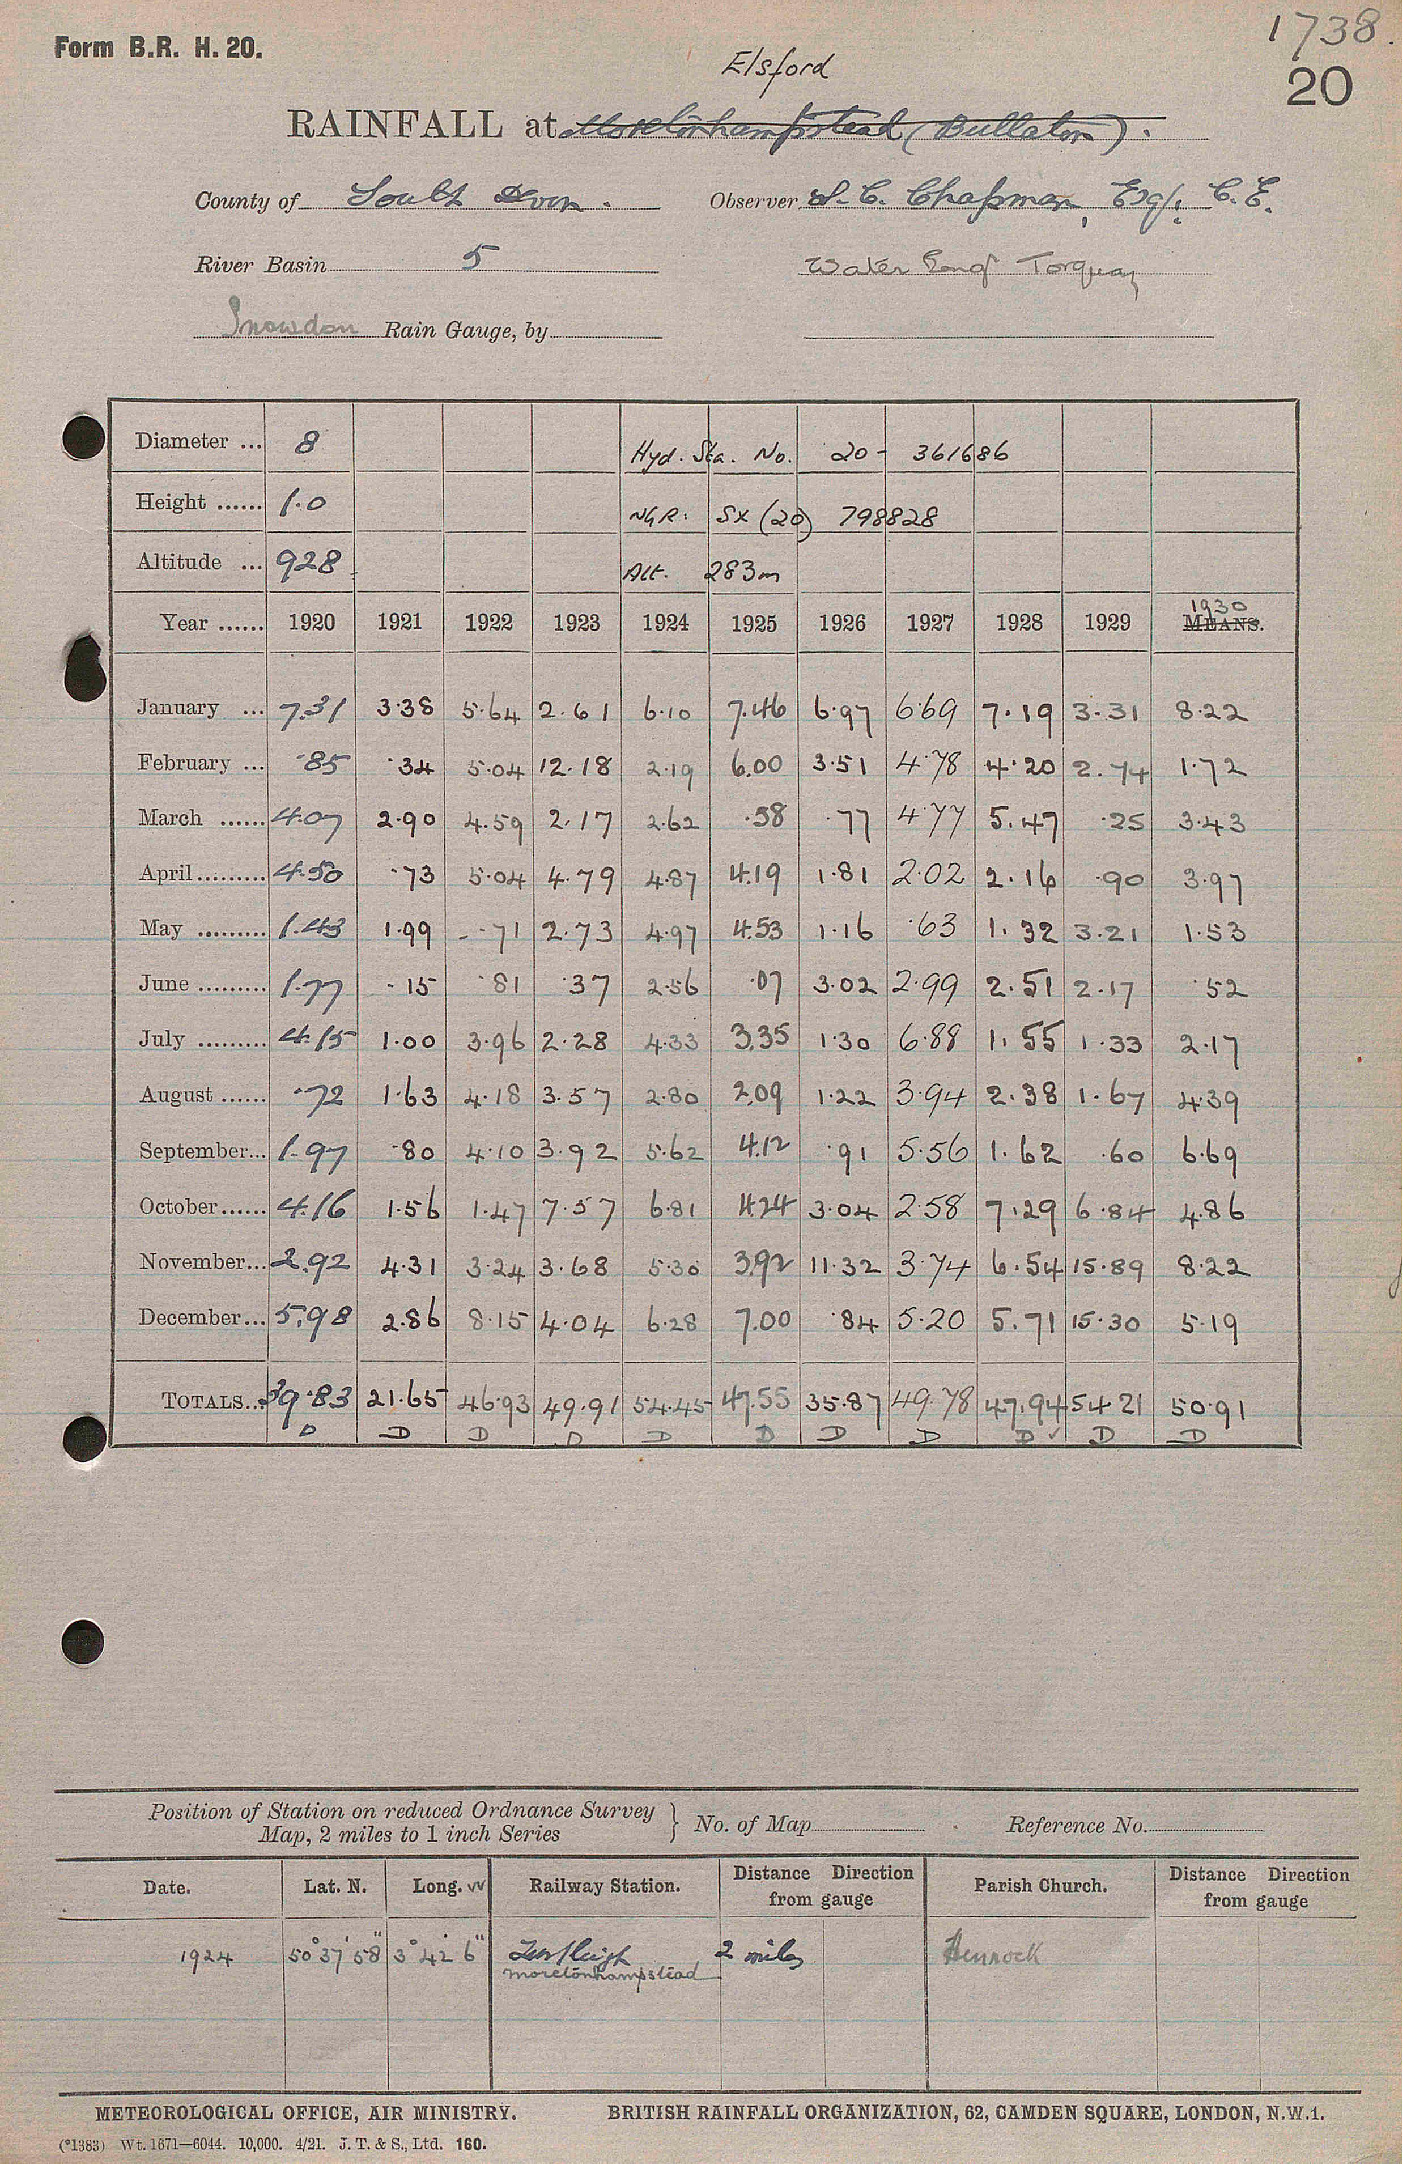 1738.
Form B.R. H. 20.
20
Elsford
RAINFALL at Moretonhampstead (Bullaton).
County of South Devon. Observer S. C. Chapman, Esq., C.E.
River Basin 5 Water Eng Torquay
Snowdon Rain Gauge, by
Diameter ... 8 Hyd. Sta. No. 20- 361686
Height ...... 1.0 NGR: SX (20) 798828
Altitude ... 928 Alt. 283m
1930
Year ...... 1920 1921 1922 1923 1924 1925 1926 1927 1928 1929 MEANS.
January ... 7.31 3.38 5.64 2.61 6.10 7.46 6.97 6.69 7.19 3.31 8.22
February ... .85 .34 5.04 12.18 2.19 6.00 3.51 4.78 4.20 2.74 1.72
March ...... 4.07 2.90 4.59 2.17 2.62 .58 .77 4.77 5.47 .25 3.43
April ......... 4.50 .73 5.04 4.79 4.87 4.19 1.81 2.02 2.16 .90 3.97
May ......... 1.43 1.99 .71 2.73 4.97 4.53 1.16 .63 1.32 3.21 1.53
June ......... 1.77 .15 .81 .37 2.56 .07 3.02 2.99 2.51 2.17 .52
July ......... 4.15 1.00 3.96 2.28 4.33 3.35 1.30 6.88 1.55 1.33 2.17
August ...... .72 1.63 4.18 3.57 2.80 2.09 1.22 3.94 2.38 1.67 4.39
September... 1.97 .80 4.10 3.92 5.62 4.12 .91 5.56 1.62 .60 6.69
October...... 4.16 1.56 1.47 7.57 6.81 4.24 3.04 2.58 7.29 6.84 4.86
November... 2.92 4.31 3.24 3.68 5.30 3.92 11.32 3.74 6.54 15.89 8.22
December... 5.98 2.86 8.15 4.04 6.28 7.00 .84 5.20 5.71 15.30 5.19
TOTALS... 39.83 21.65 46.93 49.91 54.45 47.55 35.87 49.78 47.94 54.21 50.91
D D D D D D D D D ✓ D D
Position of Station on reduced Ordnance Survey
Map, 2 miles to 1 inch Series } No. of Map Reference No.
Date. Lat. N. Long. W Railway Station. Distance Direction from gauge Parish Church. Distance Direction from gauge
1924 50° 37' 58" 3° 42' 6" 2 miles Hennock
Moretonhampstead
METEOROLOGICAL OFFICE, AIR MINISTRY. BRITISH RAINFALL ORGANIZATION, 62, CAMDEN SQUARE, LONDON, N.W.1.
(*1383) Wt. 1671—6044. 10,000. 4/21. J. T. & S., Ltd. 160.